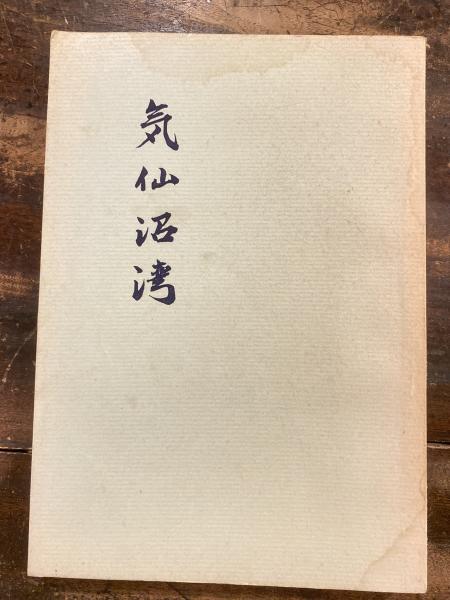 気仙沼湾